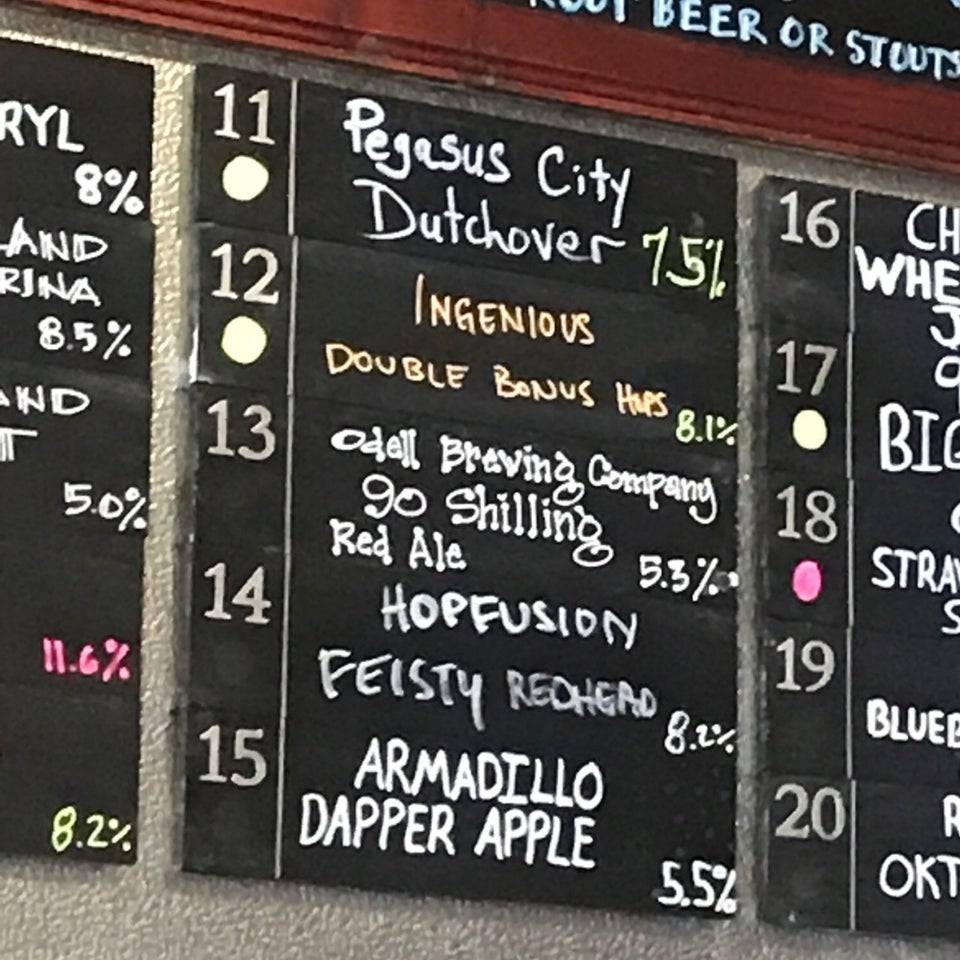 BEER OR STOUTS
RYL
8%
8.5%
5.0%
11.6%
8.2%
11
Pegasus City
Dutchover 7.5%
12
INGENIOUS
DOUBLE BONUS HOPS
8.1%
13
Odell Brewing Company
90 Shilling
Red Ale
5.3%
14
HOPFUSION
FEISTY REDHEAD
8.2%
15
ARMADILLO
DAPPER APPLE
5.5%
16
CH
WHE
17
BIG
18
STRAW
S
19
BLUEB
20
R
OKT